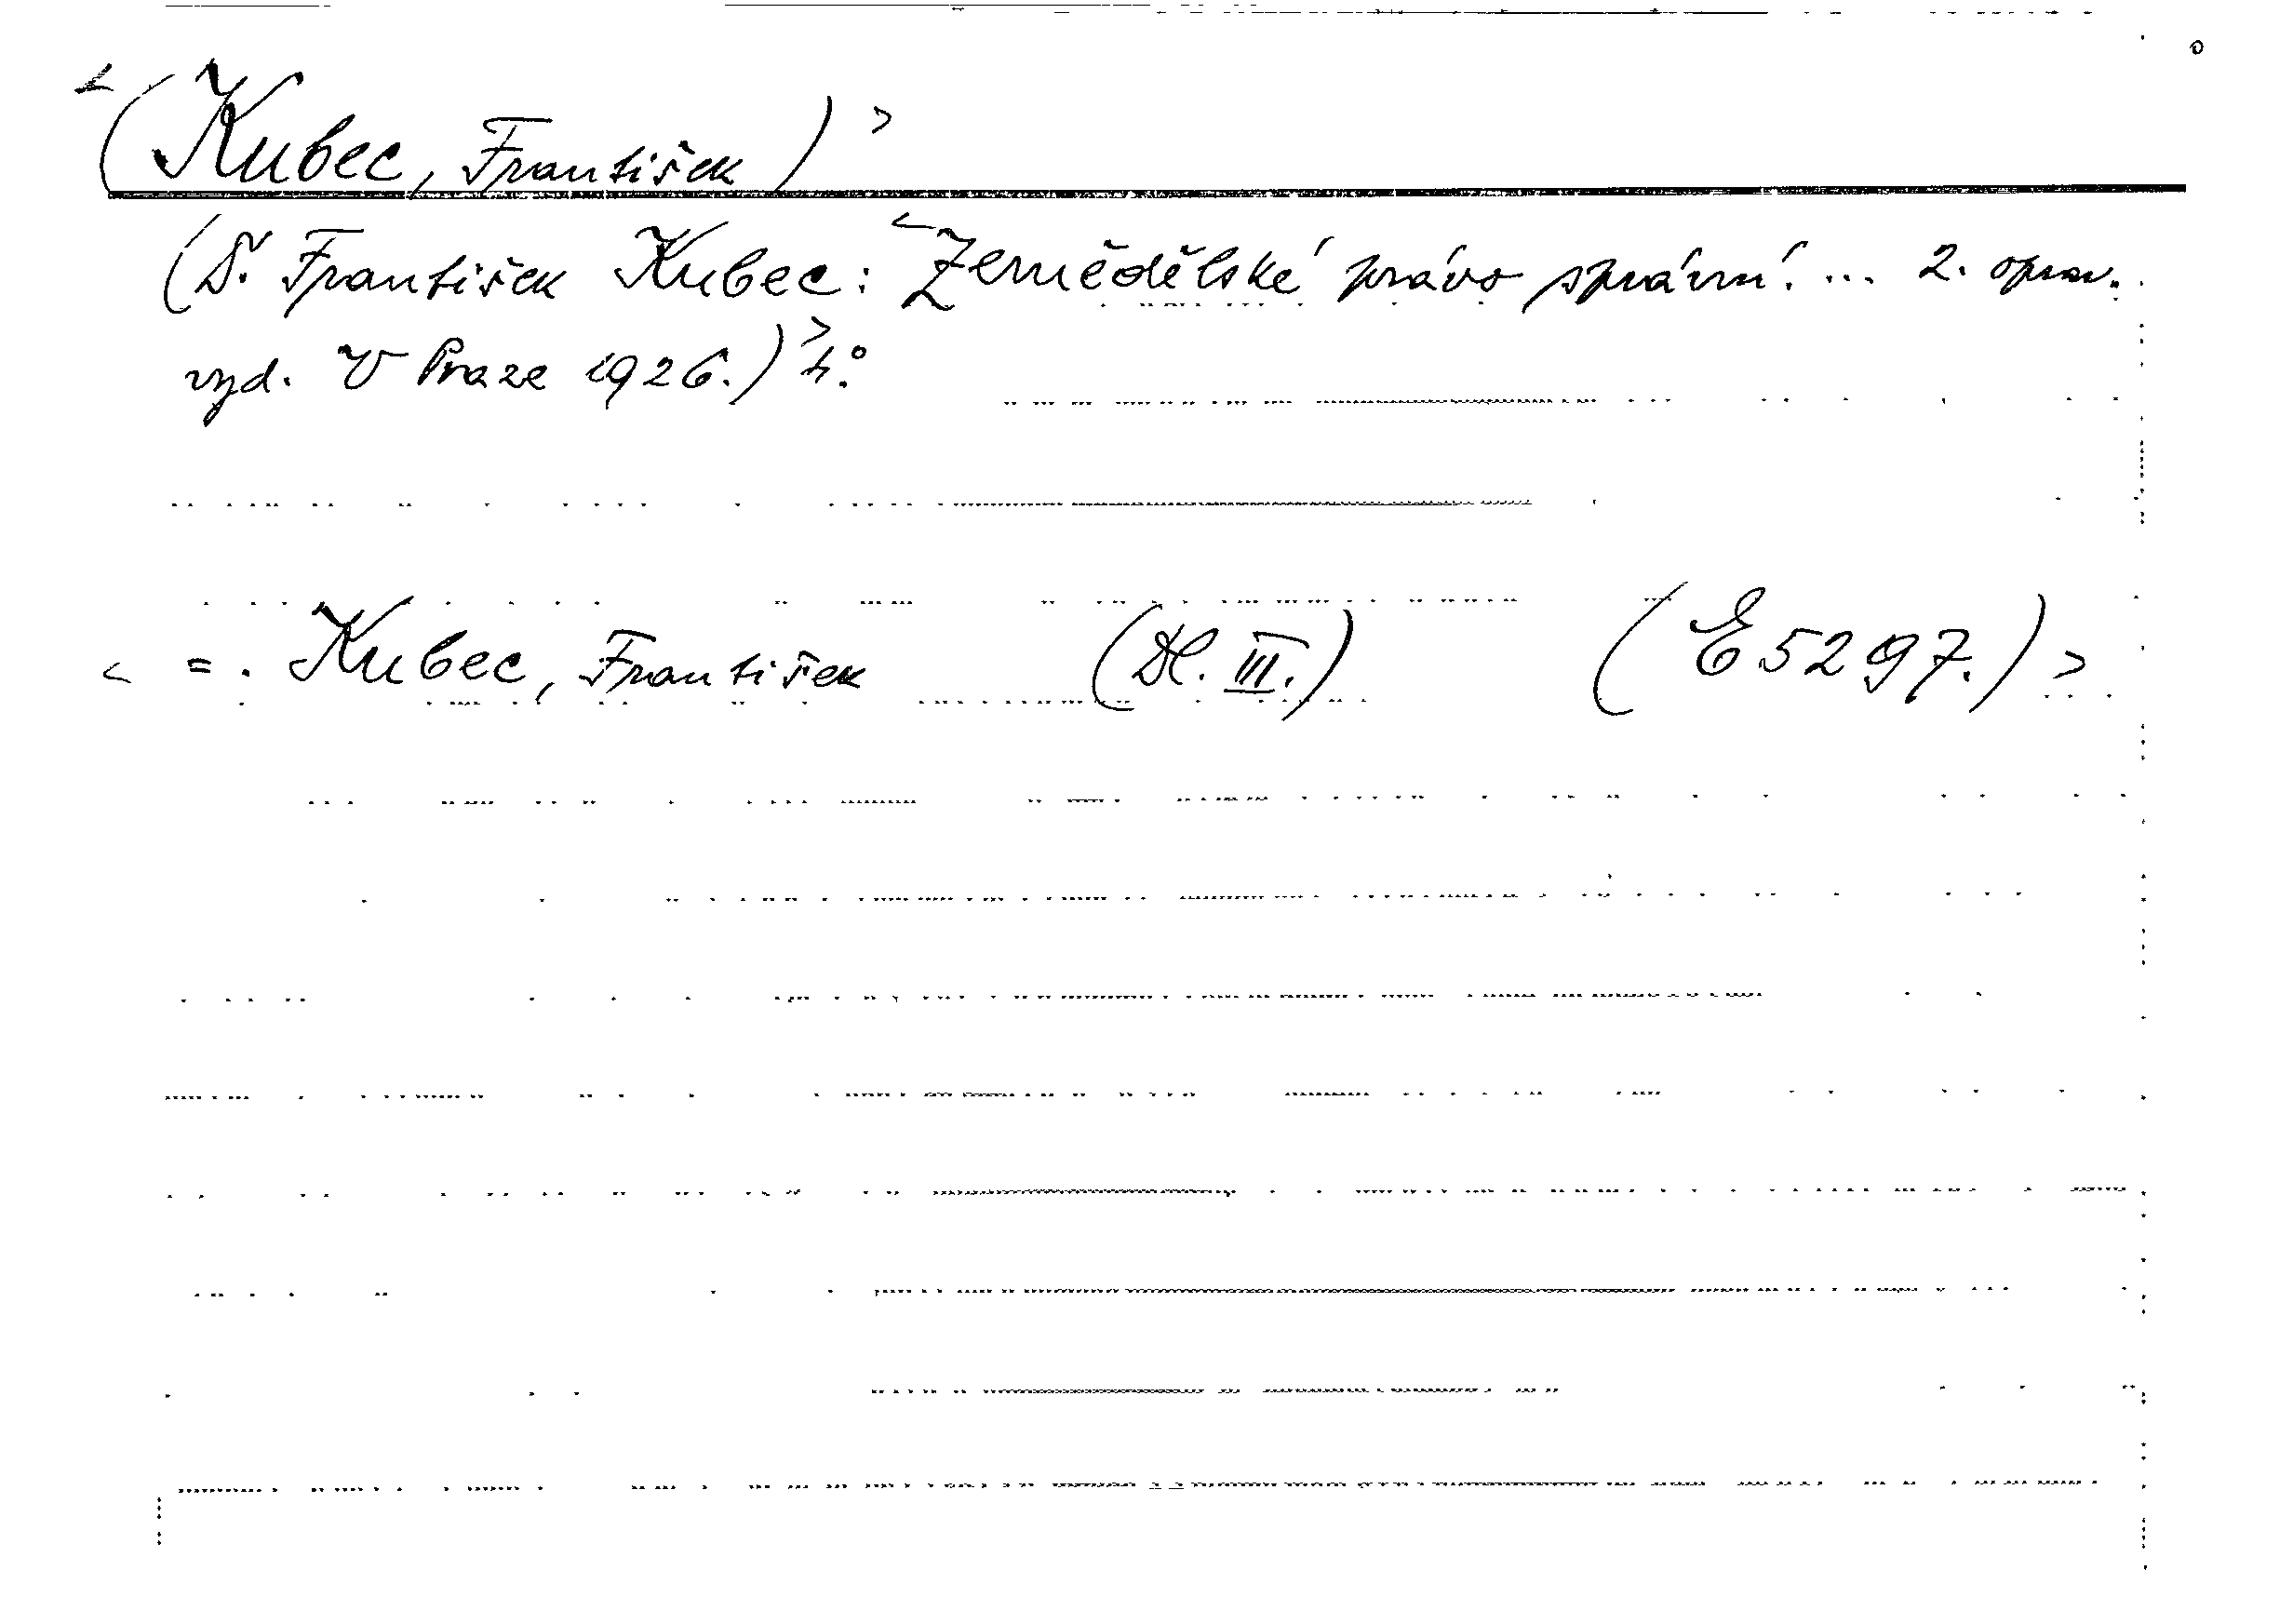 <(Kubec, František)>
(Dr. František Kubec: <Zemědělské právo správní. ... 2. oprav.
vyd. V Praze 1926.)> 4°.
< = . Kubec, František (Dl. III.) (E 5297.) >